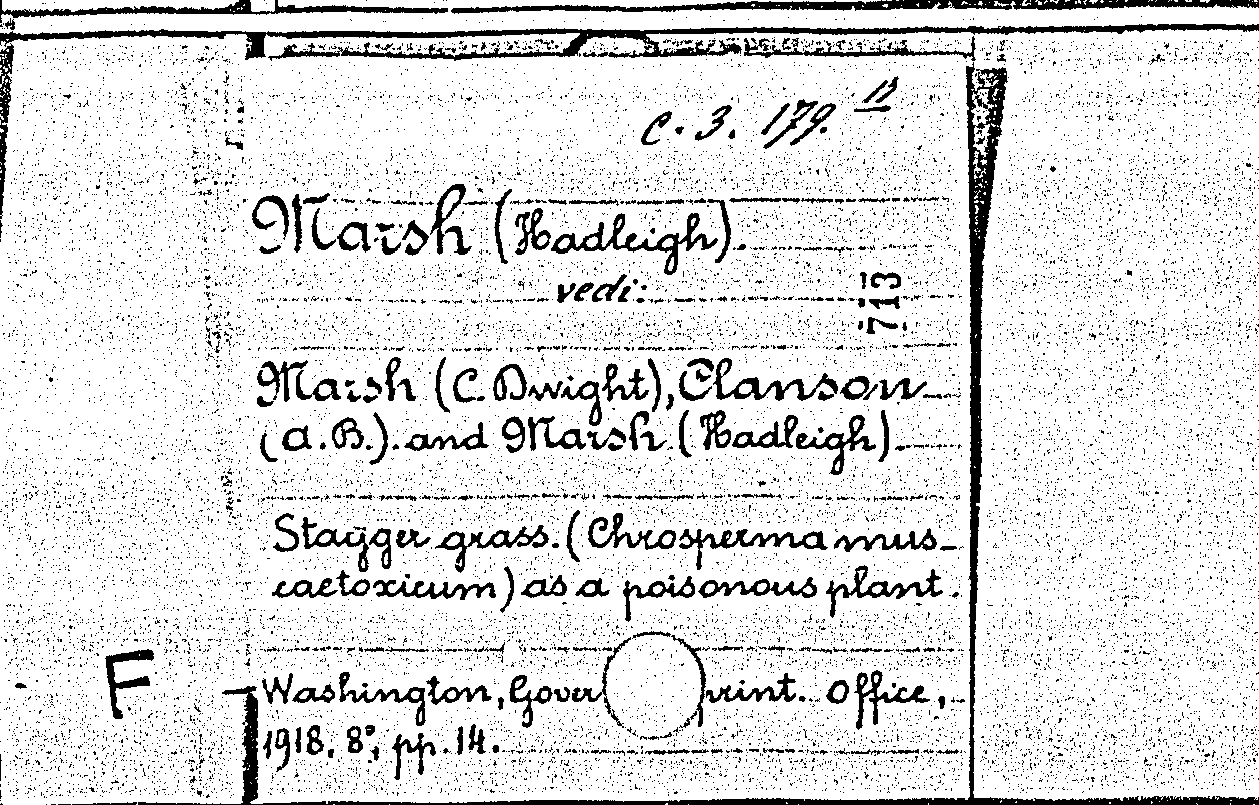 C. 3. 179. 12
Marsh (Hadleigh).
vedi:
713
Marsh (C. Dwight), Clanson
(A. B.). and Marsh (Hadleigh).
Stagger grass. (Chrosperma mus-
caetoxicum) as a poisonous plant.
F
Washington, Gover print. Office,
1918, 8°, pp. 14.